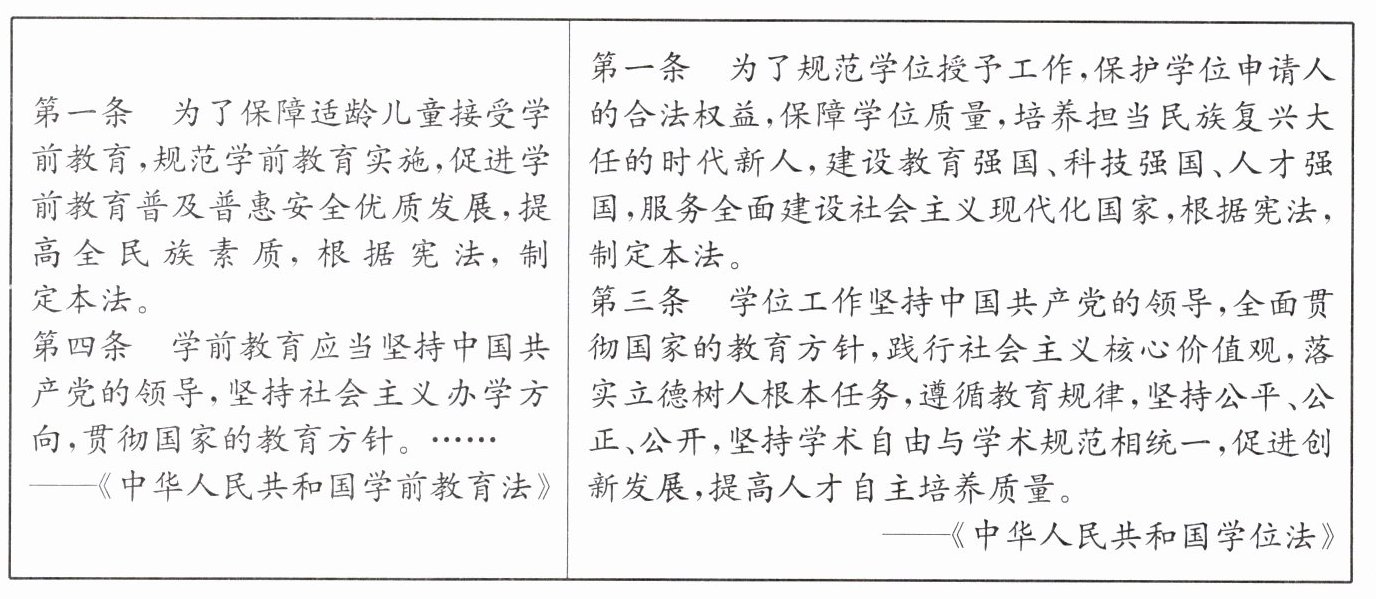 第一条　为了保障适龄儿童接受学
前教育,规范学前教育实施,促进学
前教育普及普惠安全优质发展,提
高全民族素质,根据宪法,制
定本法。
第四条　学前教育应当坚持中国共
产党的领导,坚持社会主义办学方
向,贯彻国家的教育方针。……
——《中华人民共和国学前教育法》
第一条　为了规范学位授予工作,保护学位申请人
的合法权益,保障学位质量,培养担当民族复兴大
任的时代新人,建设教育强国、科技强国、人才强
国,服务全面建设社会主义现代化国家,根据宪法,
制定本法。
第三条　学位工作坚持中国共产党的领导,全面贯
彻国家的教育方针,践行社会主义核心价值观,落
实立德树人根本任务,遵循教育规律,坚持公平、公
正、公开,坚持学术自由与学术规范相统一,促进创
新发展,提高人才自主培养质量。
——《中华人民共和国学位法》